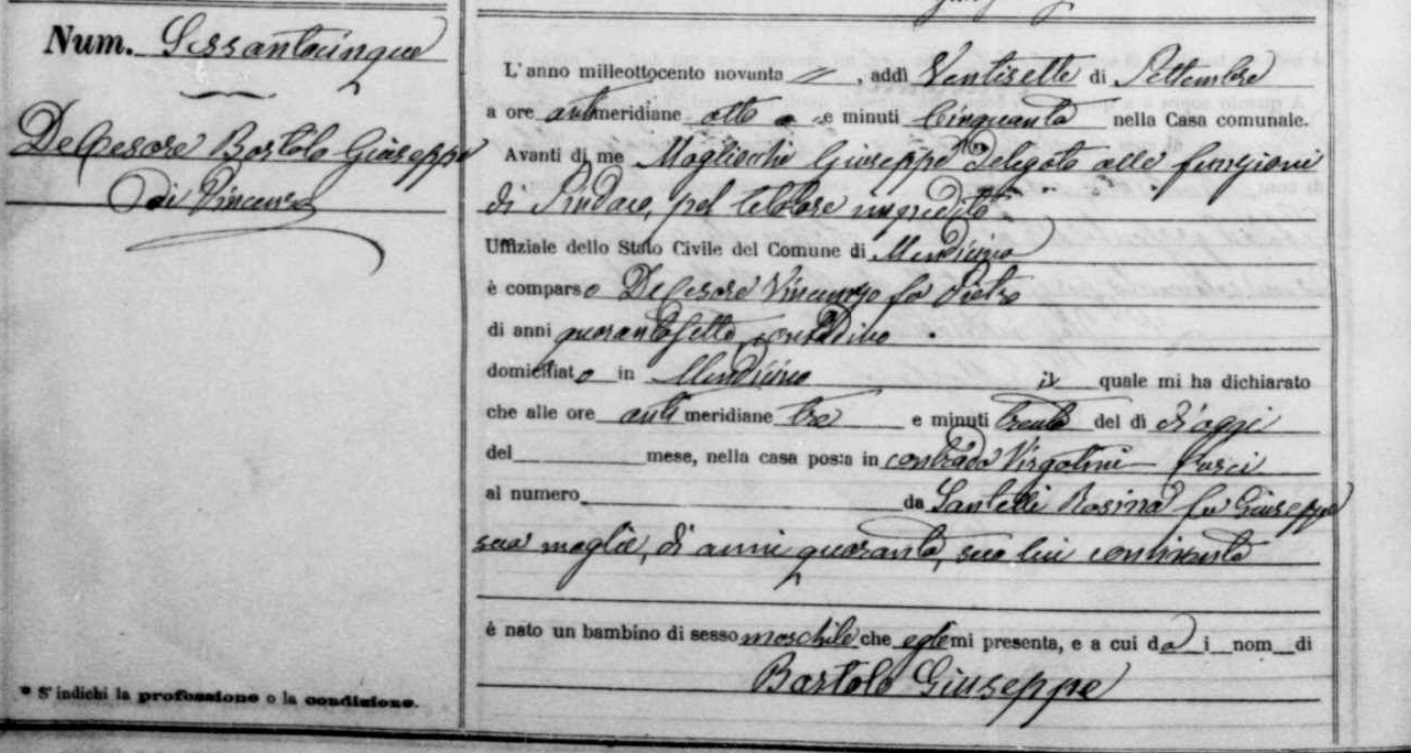 Num. Sessantacinque
De Cesare Bartolo Giuseppe
di Vincenzo
* S' indichi la professione o la condizione.
L' anno milleottocento novanta , addì Ventisette di Settembre
a ore antimeridiane otto e minuti Cinquanta nella Casa comunale.
Avanti di me Magliocchi Giuseppe Delegato alle funzioni
di Sindaco, pel titolare impedito
Uffiziale dello Stato Civile del Comune di Mendicino
è comparso De Cesare Vincenzo fu Pietro
di anni quarantasette, contadino
domiciliato in Mendicino il quale mi ha dichiarato
che alle ore anti meridiane tre e minuti trenta del dì d'oggi
del mese, nella casa posta in contrada Virgolini
al numero da Santelli Rosina fu Giuseppe
sua moglie, di anni quaranta, seco lui convivente
è nato un bambino di sesso maschile che egli mi presenta, e a cui dà i nom di
Bartolo Giuseppe